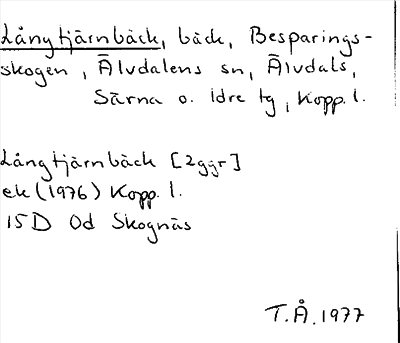 Långtjärnbäck, bäck, Besparings-
skogen, Älvdalens sn, Älvdals,
Särna o. Idre tg, Kopp. l.
Långtjärnbäck [2ggr]
ek (1976) Kopp. l.
15D 0d Skognäs
T.Å. 1977